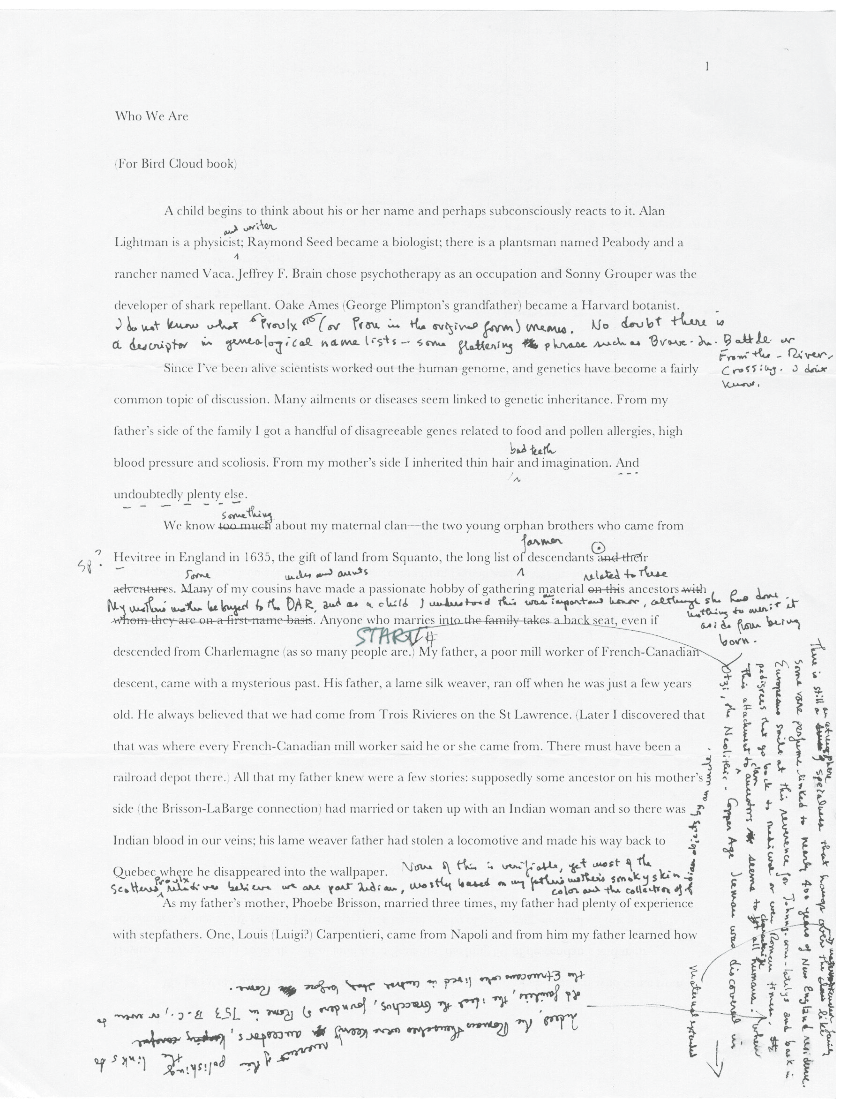 1
Who We Are
(For Bird Cloud book)
A child begins to think about his or her name and perhaps subconsciously reacts to it. Alan
and writer
Lightman is a physicist; Raymond Seed became a biologist; there is a plantsman named Peabody and a
rancher named Vaca. Jeffrey F. Brain chose psychotherapy as an occupation and Sonny Grouper was the
developer of shark repellant. Oake Ames (George Plimpton's grandfather) became a Harvard botanist.
I do not know what "Proulx" (or Prou in the original form) means. No doubt there is
a descriptor in genealogical name lists – some flattering phrase such as Brave-In-Battle or
From the-River-
Crossing. I don't
know.
Since I've been alive scientists worked out the human genome, and genetics have become a fairly
common topic of discussion. Many ailments or diseases seem linked to genetic inheritance. From my
father's side of the family I got a handful of disagreeable genes related to food and pollen allergies, high
bad teeth
blood pressure and scoliosis. From my mother's side I inherited thin hair and imagination. And
undoubtedly plenty else.
something
We know too much about my maternal clan—the two young orphan brothers who came from
farmer
sp?
Hevitree in England in 1635, the gift of land from Squanto, the long list of descendants and their
Some uncles and aunts related to these
adventures. Many of my cousins have made a passionate hobby of gathering material on this ancestors with
My mother's mother belonged to the DAR, and as a child I understood this was important honor, although she had done
nothing to merit it
aside from being
born.
whom they are on a first-name basis. Anyone who marries into the family takes a back seat, even if
START
descended from Charlemagne (as so many people are.) My father, a poor mill worker of French-Canadian
descent, came with a mysterious past. His father, a lame silk weaver, ran off when he was just a few years
old. He always believed that we had come from Trois Rivieres on the St Lawrence. (Later I discovered that
that was where every French-Canadian mill worker said he or she came from. There must have been a
railroad depot there.) All that my father knew were a few stories: supposedly some ancestor on his mother's
side (the Brisson-LaBarge connection) had married or taken up with an Indian woman and so there was
Indian blood in our veins; his lame weaver father had stolen a locomotive and made his way back to
Quebec where he disappeared into the wallpaper. None of this is verifiable, yet most of the
scattered Proulx relatives believe we are part Indian, mostly based on my father's mother's smoky skin
color and the collection of
As my father's mother, Phoebe Brisson, married three times, my father had plenty of experience
with stepfathers. One, Louis (Luigi?) Carpentieri, came from Napoli and from him my father learned how
There is still an atmosphere
of specialness that hangs over the clan like
some rare perfume linked to nearly 400 years of New England residence.
Europeans smile at this reverence for Johnny-come-latelys and bask in
pedigrees that go back to medieval or even Roman times.
This attachment to clan ancestors seems to characterize all humans. When
Otzi, the Neolithic-Copper Age Iceman was discovered in
maternal
Indeed, the Romans themselves were keenly
reverent of their ancestors, polishing the links to
old families, the founders of Rome in 753 B.C., or even to
the Etruscans who lived in central Italy before Rome.